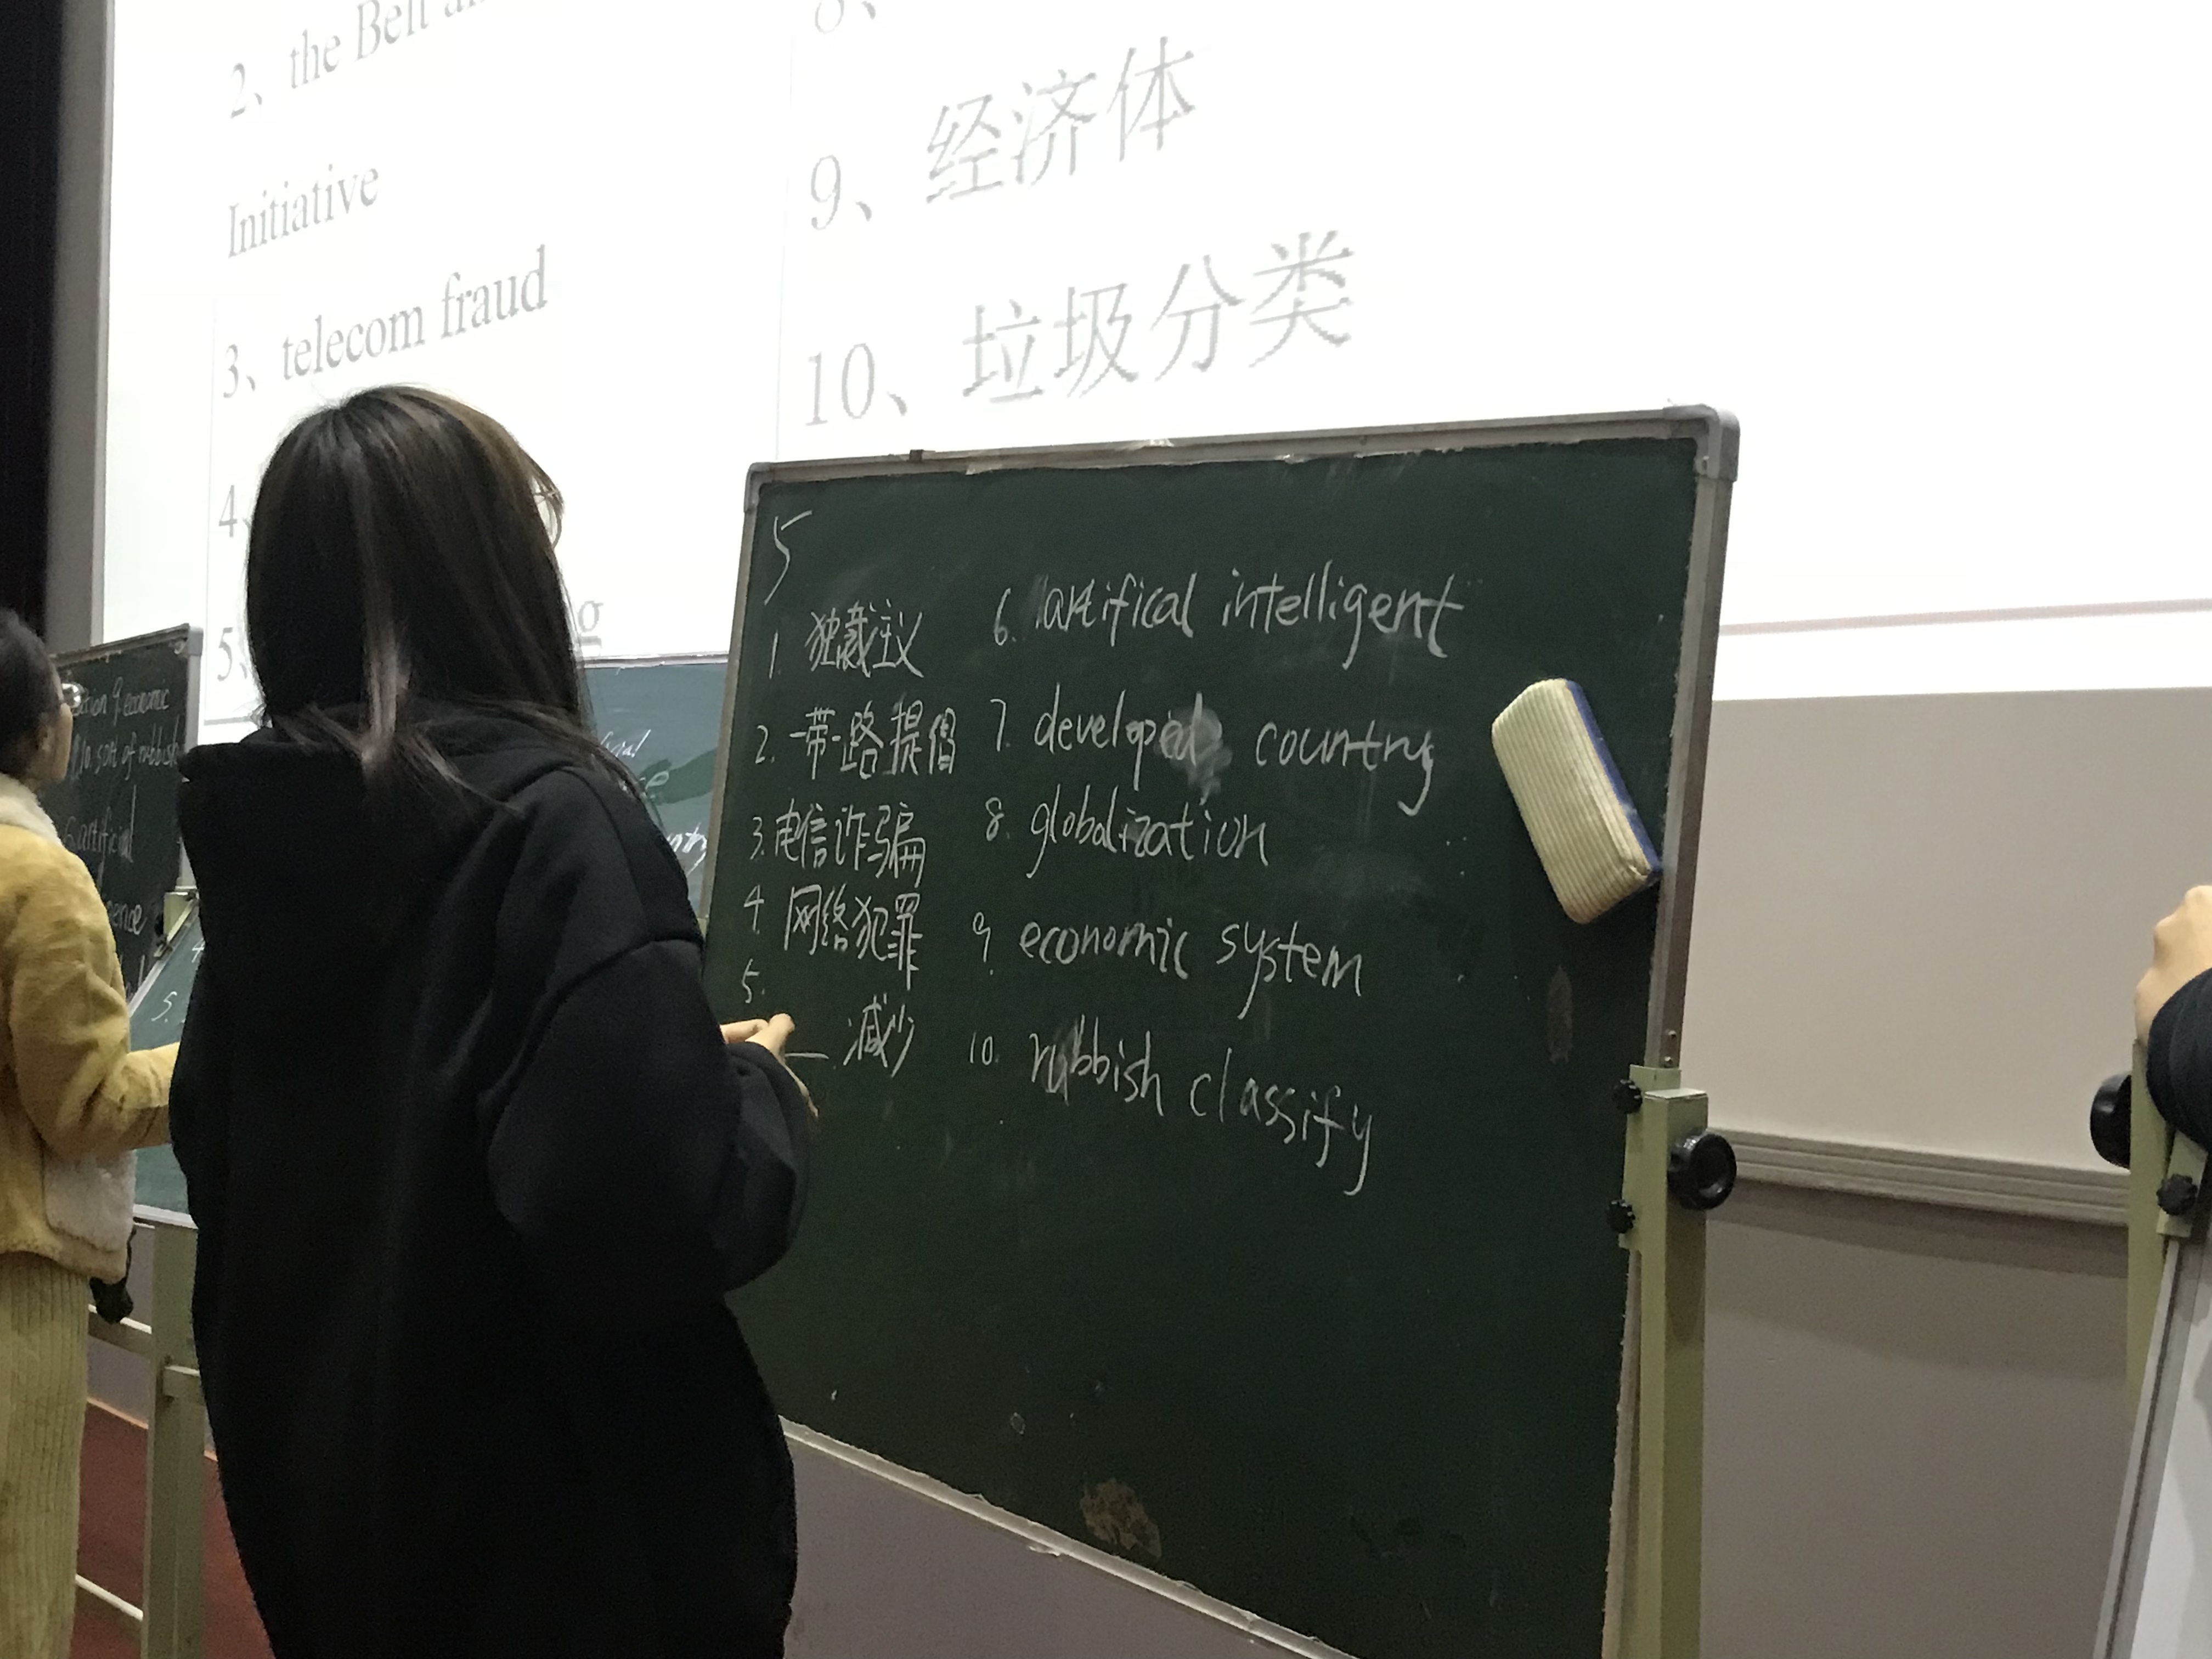 2、the Belt
Initiative
3、telecom fraud
4、
5、
g
9、经济体
10、垃圾分类
5
1. 独裁主义
2. 一带一路提倡
3. 电信诈骗
4. 网络犯罪
5.
减少
6. artifical intelligent
7. developed country
8. globalization
9. economic system
10. rubbish classify
9. economic
10. sort of rubbish
6. artificial
5.